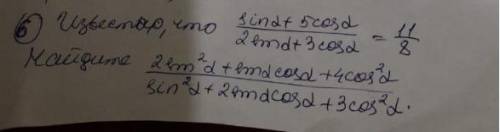 ⑥ Известно, что (sinα + 5cosα)/(2sinα + 3cosα) = 11/8
Найдите (2sin²α + sinαcosα + 4cos²α)/(sin²α + 2sinαcosα + 3cos²α).